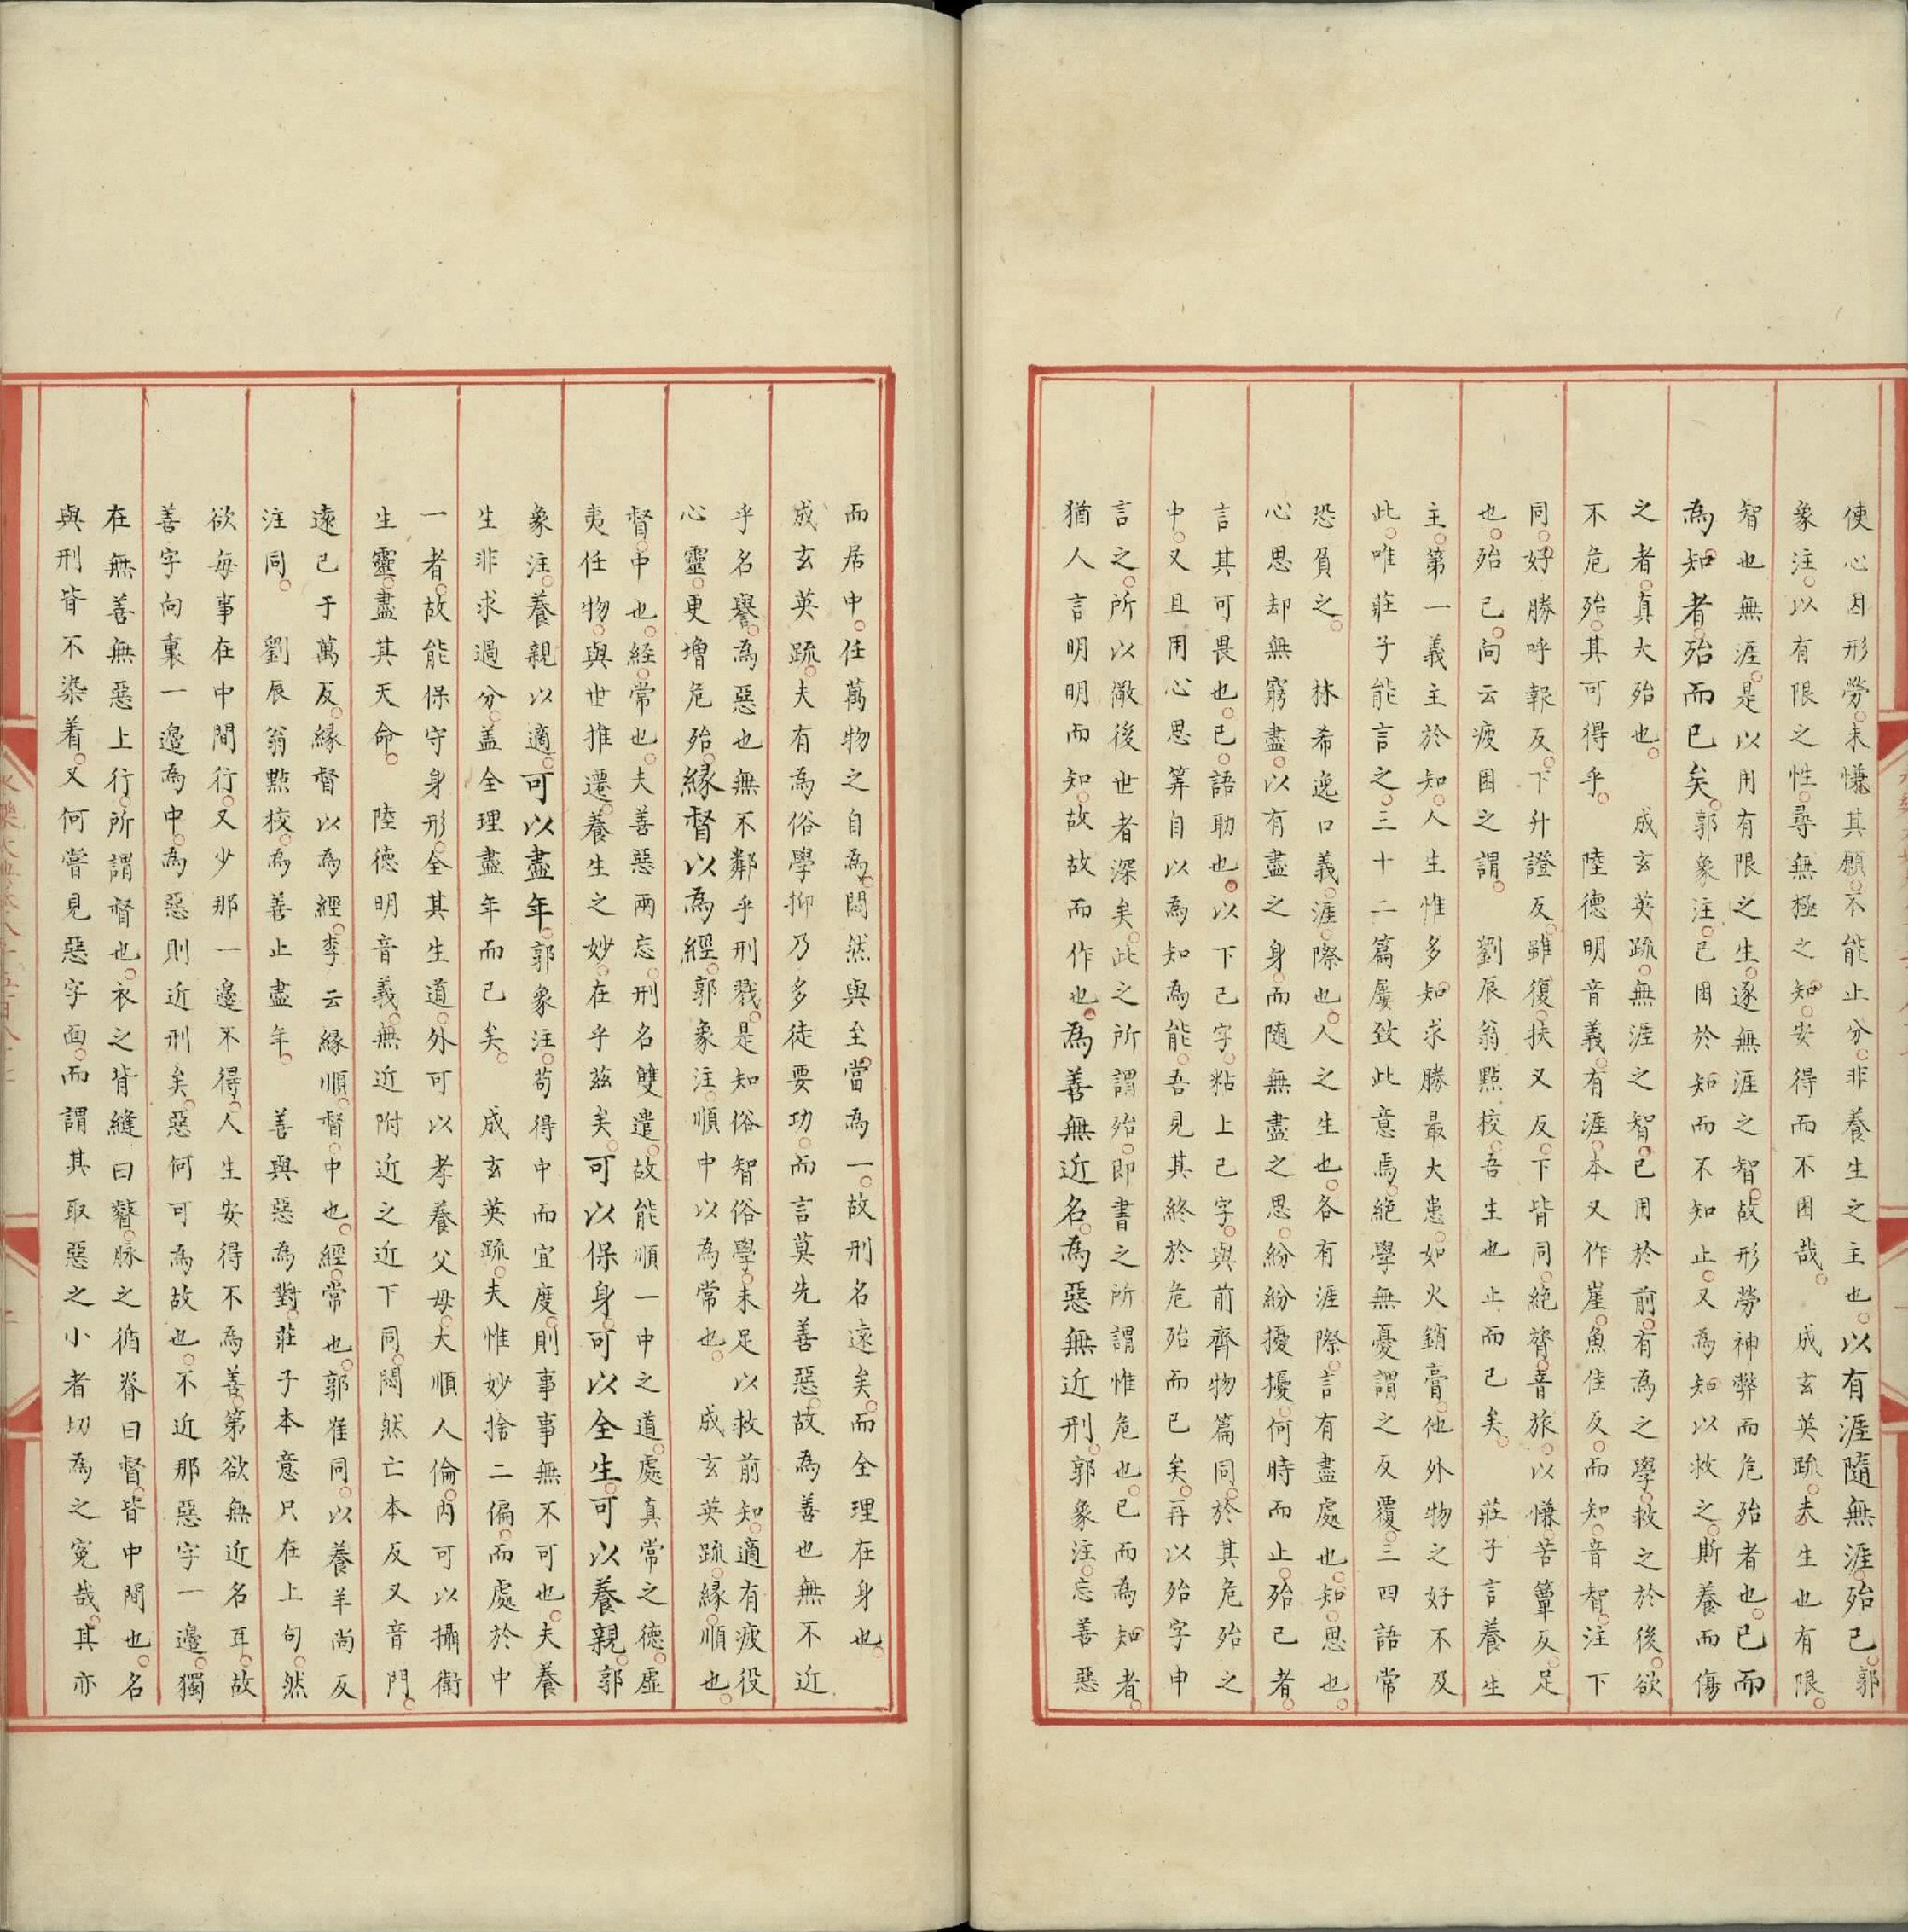 使心因形勞。未慊其願。不能止分。非養生之主也。以有涯隨無涯。殆已。郭
象注。以有限之性。尋無極之知。安得而不困哉。 成玄英疏。夫生也有限。
智也無涯。是以用有限之生。逐無涯之智。故形勞神弊而危殆者也。已而
為知者。殆而已矣。郭象注。已困於知而不知止。又為知以救之。斯養而傷
之者。真大殆也。 成玄英疏。無涯之智。已用於前。有為之學。救之於後。欲
不危殆。其可得乎。 陸德明音義。有涯。本又作崖。魚佳反。而知。音智。注下
同。好勝。呼報反。下升證反。雖復。扶又反。下皆同。絶膂。音旅。以慊。苦簟反。足
也。殆已。向云疲困之謂。 劉辰翁點校。吾生也止而已矣。 莊子言養生
主。第一義主於知。人生惟多知求勝最大患。如火銷膏。他外物之好不及
此。唯莊子能言之。三十二篇屢致此意焉。絶學無憂謂之反覆。三四語常
恐負之。 林希逸口義。涯際也。人之生也。各有涯際。言有盡處也。知。思也。
心思却無窮盡。以有盡之身。而隨無盡之思。紛紛擾擾。何時而止。殆已者。
言其可畏也。已。語助也。以下已字。粘上已字。與前齊物篇同。於其危殆之
中。又且用心思筭自以為知為能。吾見其終於危殆而已矣。再以殆字申
言之。所以儆後世者深矣。此之所謂殆。即書之所謂惟危也。已而為知者。
猶人言明明而知。故故而作也。為善無近名。為惡無近刑。郭象注。忘善惡
而居中。任萬物之自為。悶然與至當為一。故刑名遠矣。而全理在身也。
成玄英疏。夫有為俗學抑乃多徒。要功。而言莫先善惡。故為善也無不近
乎名譽。為惡也無不鄰乎刑戮。是知俗智俗學。未足以救前知。適有疲役
心靈。更增危殆。緣督以為經。郭象注。順中以為常也。 成玄英疏。緣。順也。
督。中也。經。常也。夫善惡兩忘。刑名雙遣。故能順一中之道。處真常之德。虛
夷任物。與世推遷。養生之妙。在乎茲矣。可以保身。可以全生。可以養親。郭
象注。養親以適。可以盡年。郭象注。苟得中而宜度。則事事無不可也。夫養
生非求過分。盖全理盡年而已矣。 成玄英疏。夫惟妙捨二偏。而處於中
一者。故能保守身形。全其生道。外可以孝養父母。大順人倫。内可以攝衛
生靈。盡其天命。 陸德明音義。無近附近之近下同。悶然亡本反又音門。
遠已于萬反。緣督以為經。李云緣順。督。中也。經。常也。郭崔同。以養羊尚反
注同。 劉辰翁點校。為善止盡年。 善與惡為對。莊子本意只在上句。然
欲每事在中間行。又少那一邊不得。人生安得不為善。第欲無近名耳。故
善字向裏一邊為中。為惡則近刑矣。惡何可為故也。不近那惡字一邊。獨
在無善無惡上行。所謂督也。衣之背縫曰䘯。脉之循脊曰督。皆中間也。名
與刑皆不染着。又何嘗見惡字面。而謂其取惡之小者切為之。寃哉。其亦